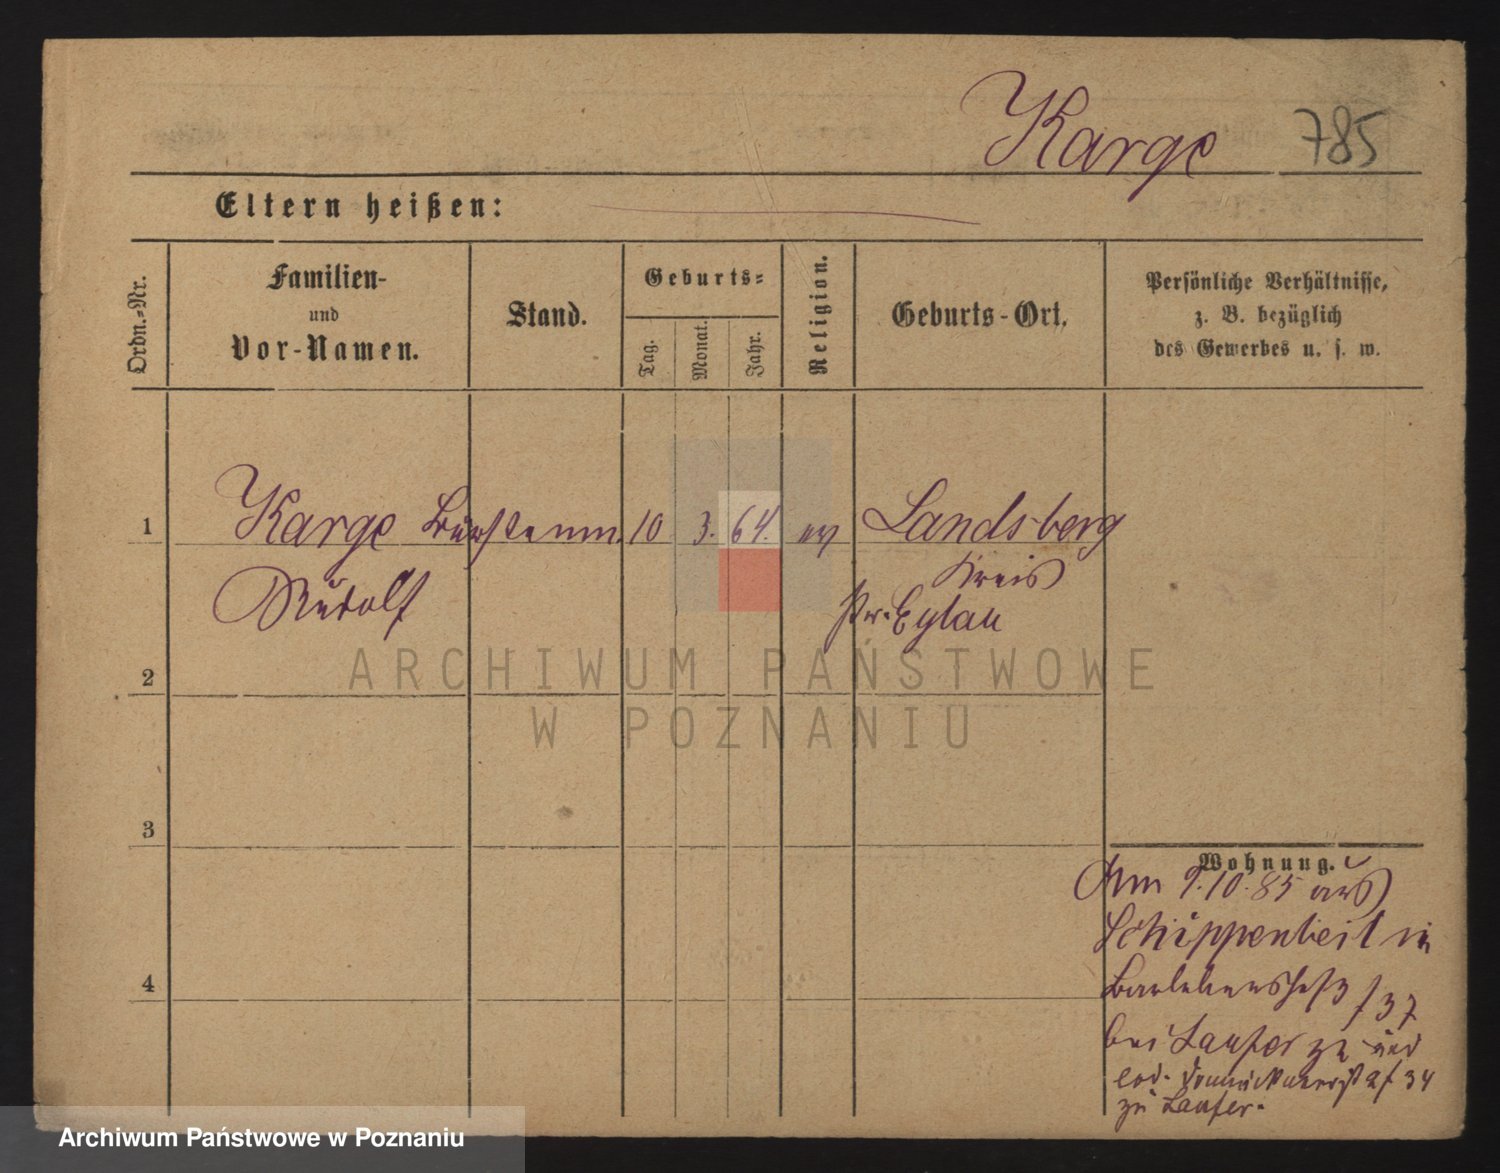 Karge 785
Eltern heißen:
Ordn.-Nr.
Familien-
und
Vor-Namen.
Stand.
Geburts-
Tag.
Monat.
Jahr.
Religion.
Geburts-Ort.
Persönliche Verhältnisse,
z. B. bezüglich
des Gewerbes u. s. w.
1 Karge 10 3. 64. ev Landsberg
Kreis
Rudolf Pr. Eylau
2
3
4
Wohnung.
Am 9.10.85 aus
Schippenbeil in
37
bei Laufer zu
34
zu Laufer.
ARCHIWUM PAŃSTWOWE
W POZNANIU
Archiwum Państwowe w Poznaniu